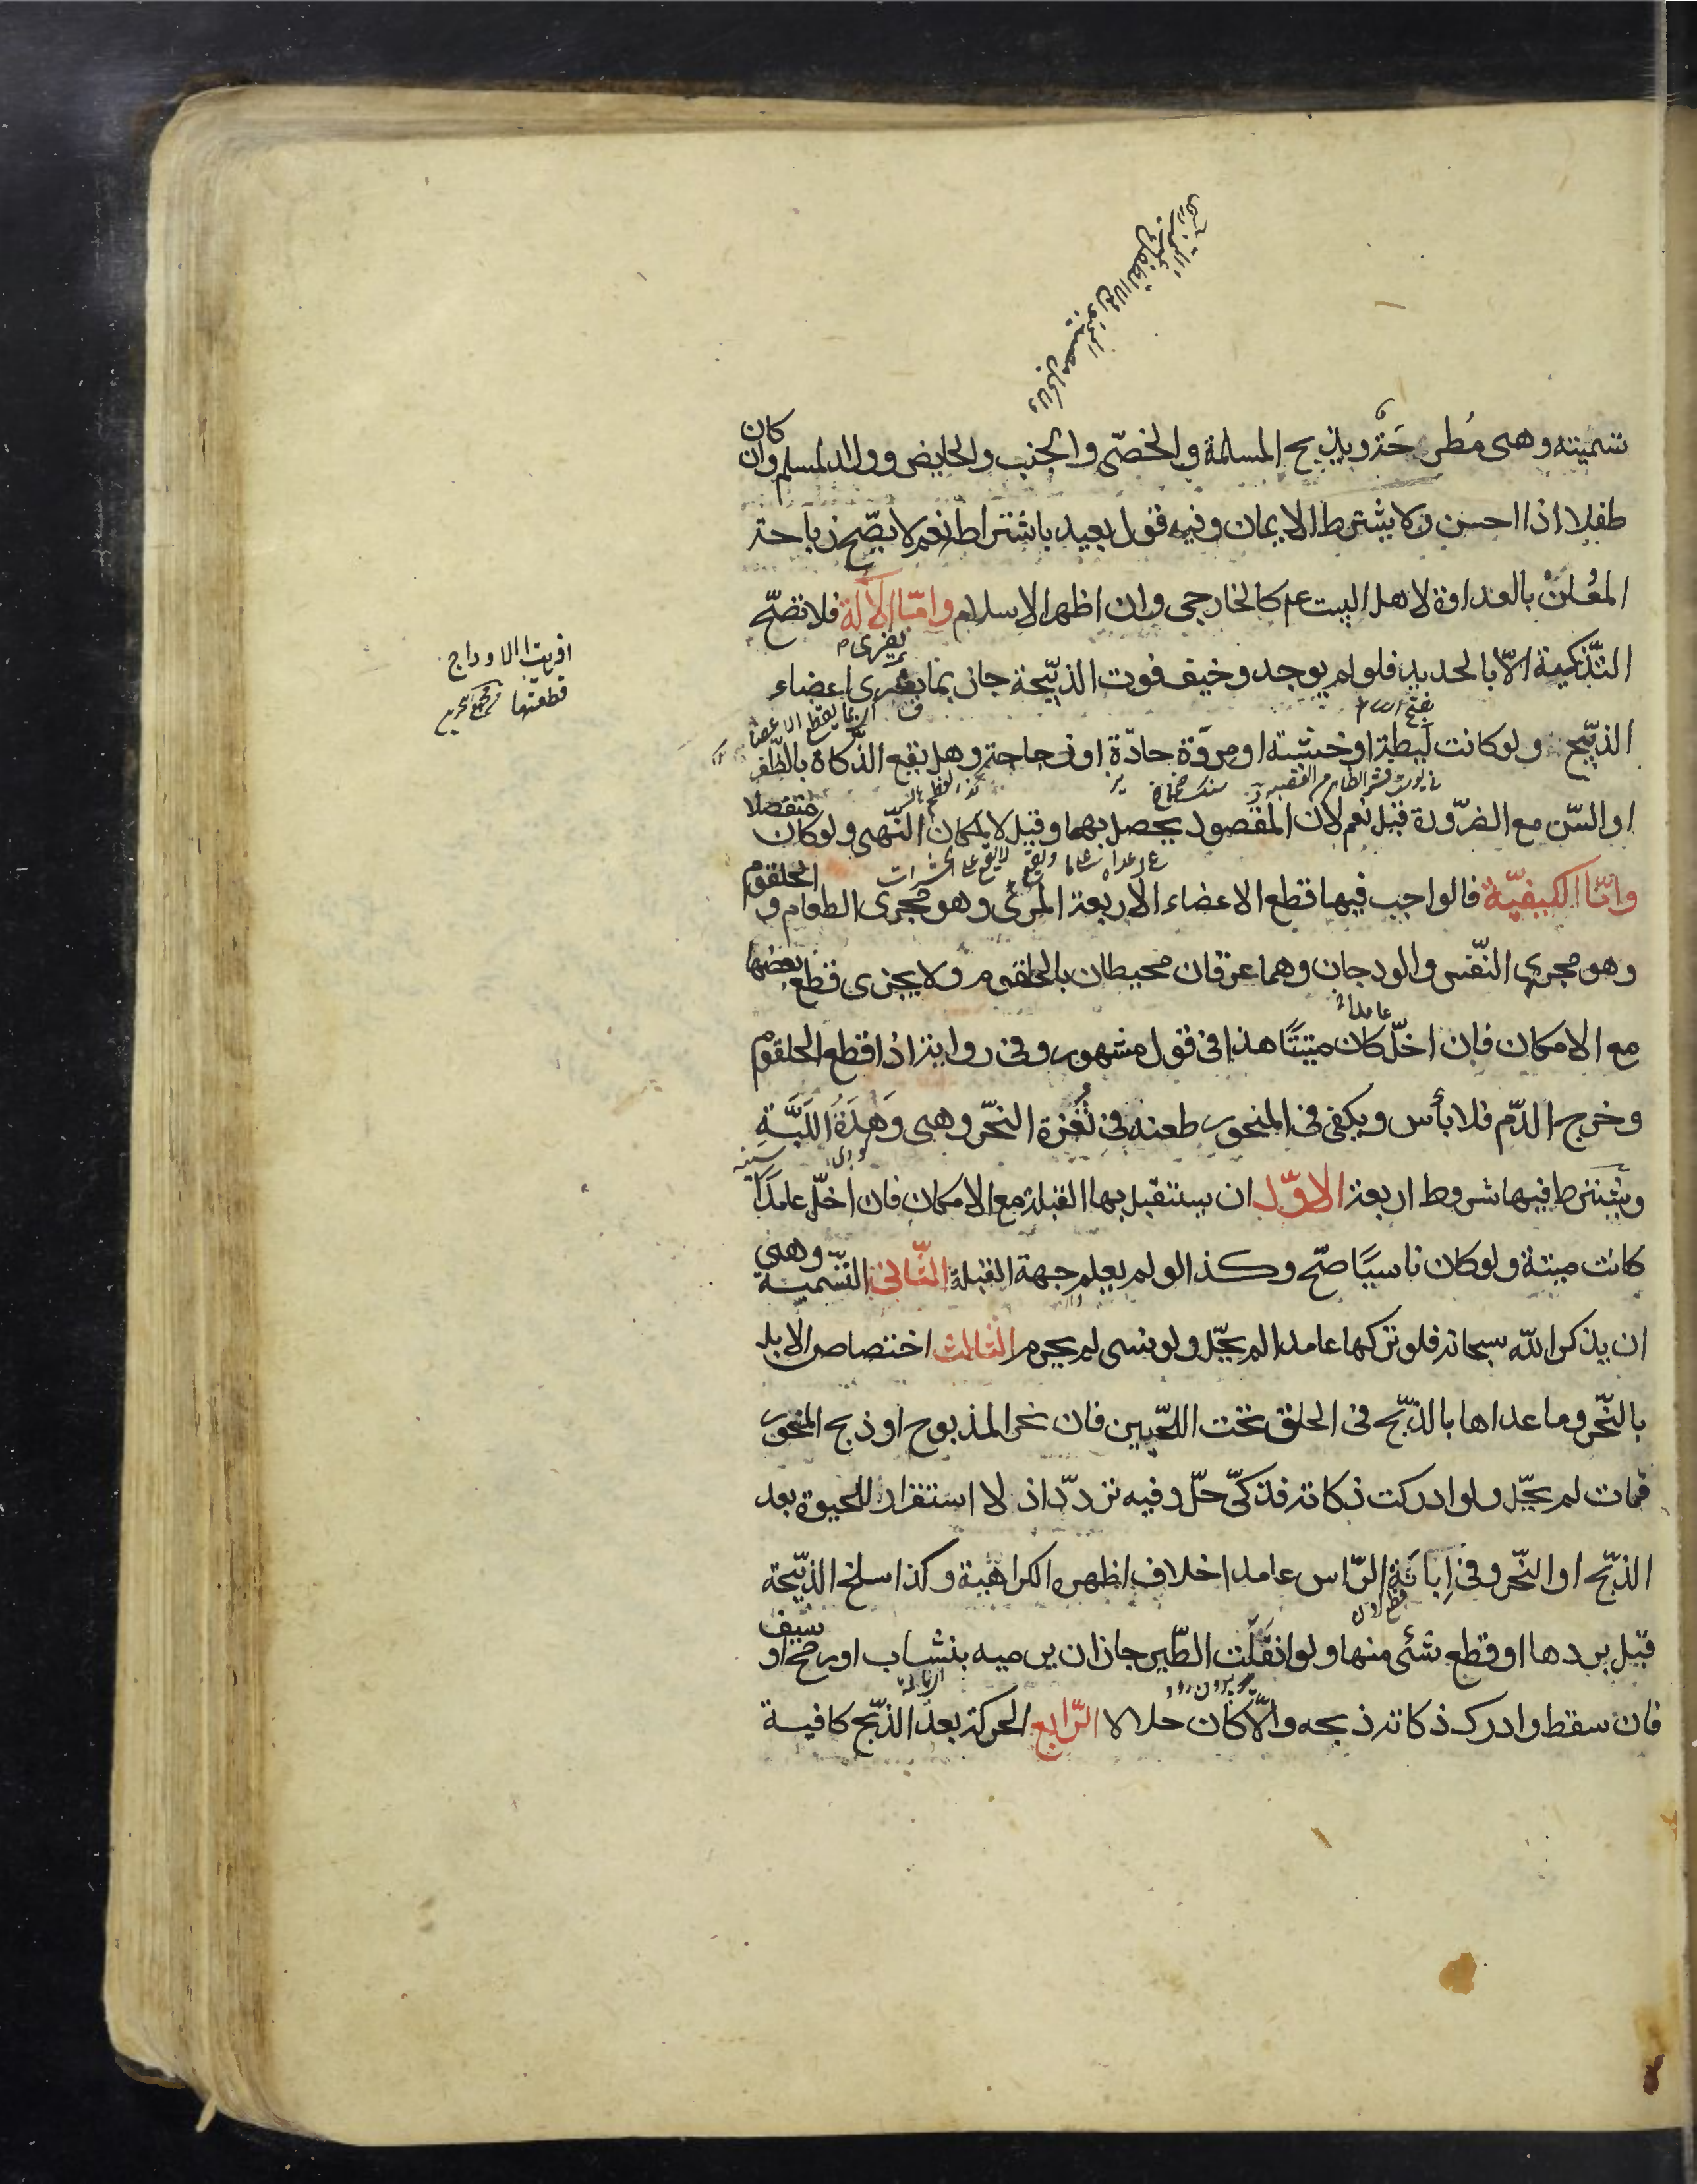 تسميته وهى مُطرحَة ويذبح المسلمة والخصّى والجنب والحايض وولد المسلم وان كان
طفلا اذا احسن ولا يشترط الايمان وفيه قول بعيد باشتراطه نعم لا يصّح ذباحة
المُعُلنْ بالعداوة لاهل البيت عم كالخارجى وان اظهر الاسلام وامّا الآلة فلا تصّح
التّذكية الاّ بالحديد فلو لم يوجد وخيف فوت الذبّيحة جاز بما يفرى اعضاء
يفرى
الذبّيح ولو كانت لَيطة او خشبته او مروَة حادّة او زجاجة وهل تقع الذّكاة بالظّفر
او السّن مع الضرّورة قيل نعم لان المقصود يحصل بهما وقيل لا لمكان النّهى ولو كان منفصلا
وامّا الكيفيّة فالواجب فيها قطع الاعضاء الاربعة المرئ وهو مجرى الطعام والحلقوم
وهو مجرى النّفس والودجان وهما عرقان محيطان بالحلقوم ولا يجزى قطع بعضها
عامدا
مع الامكان فان اخلّ كان ميتتًا هذا فى قول مشهور وفى رواية اذا قطع الحلقوم
وخرج الدّم فلا بأس ويكفى فى المنحور طعنه فى ثُغرة النحّر وهى وَهدَةُ اللَبَّةِ
ويشترط فيها شروط اربعة الاوّل ان يستقبل بها القبلة مع الامكان فان اخلّ عامدًا
كانت ميتة ولو كان ناسيًا صحّ وكذا لو لم يعلم جهة القبلة الثّانى التسّمية وهى
ان يذكر الله سبحانه فلو تركها عامدا لم يحّل ولو نسى لم يحرم الثالث اختصاص الابل
بالنحّر وما عداها بالذبّح فى الحلق تحت اللحّيين فان نحر المذبوح او ذبح المنحور
فمات لم يحّل ولو ادركت ذكاته فذكىّ حلّ وفيه تردّد اذ لا استقرار للحيوة بعد
الذبّح او النحّر وفى اِبانَةِ الرّاس عامدا خلاف اظهره الكراهية وكذا سلخ الذبّيحة
قبل بردها او قطع شئى منها ولو انفَلَتَ الطّير جاز ان يرميه بنشّاب او رمح او سيف
فان سقط وادرك ذكاته ذبحه والاّ كان حلالا الرّابع الحركة بعد الذبّح كافية
افريت الاوداج
قطعتها مجمع بحرين